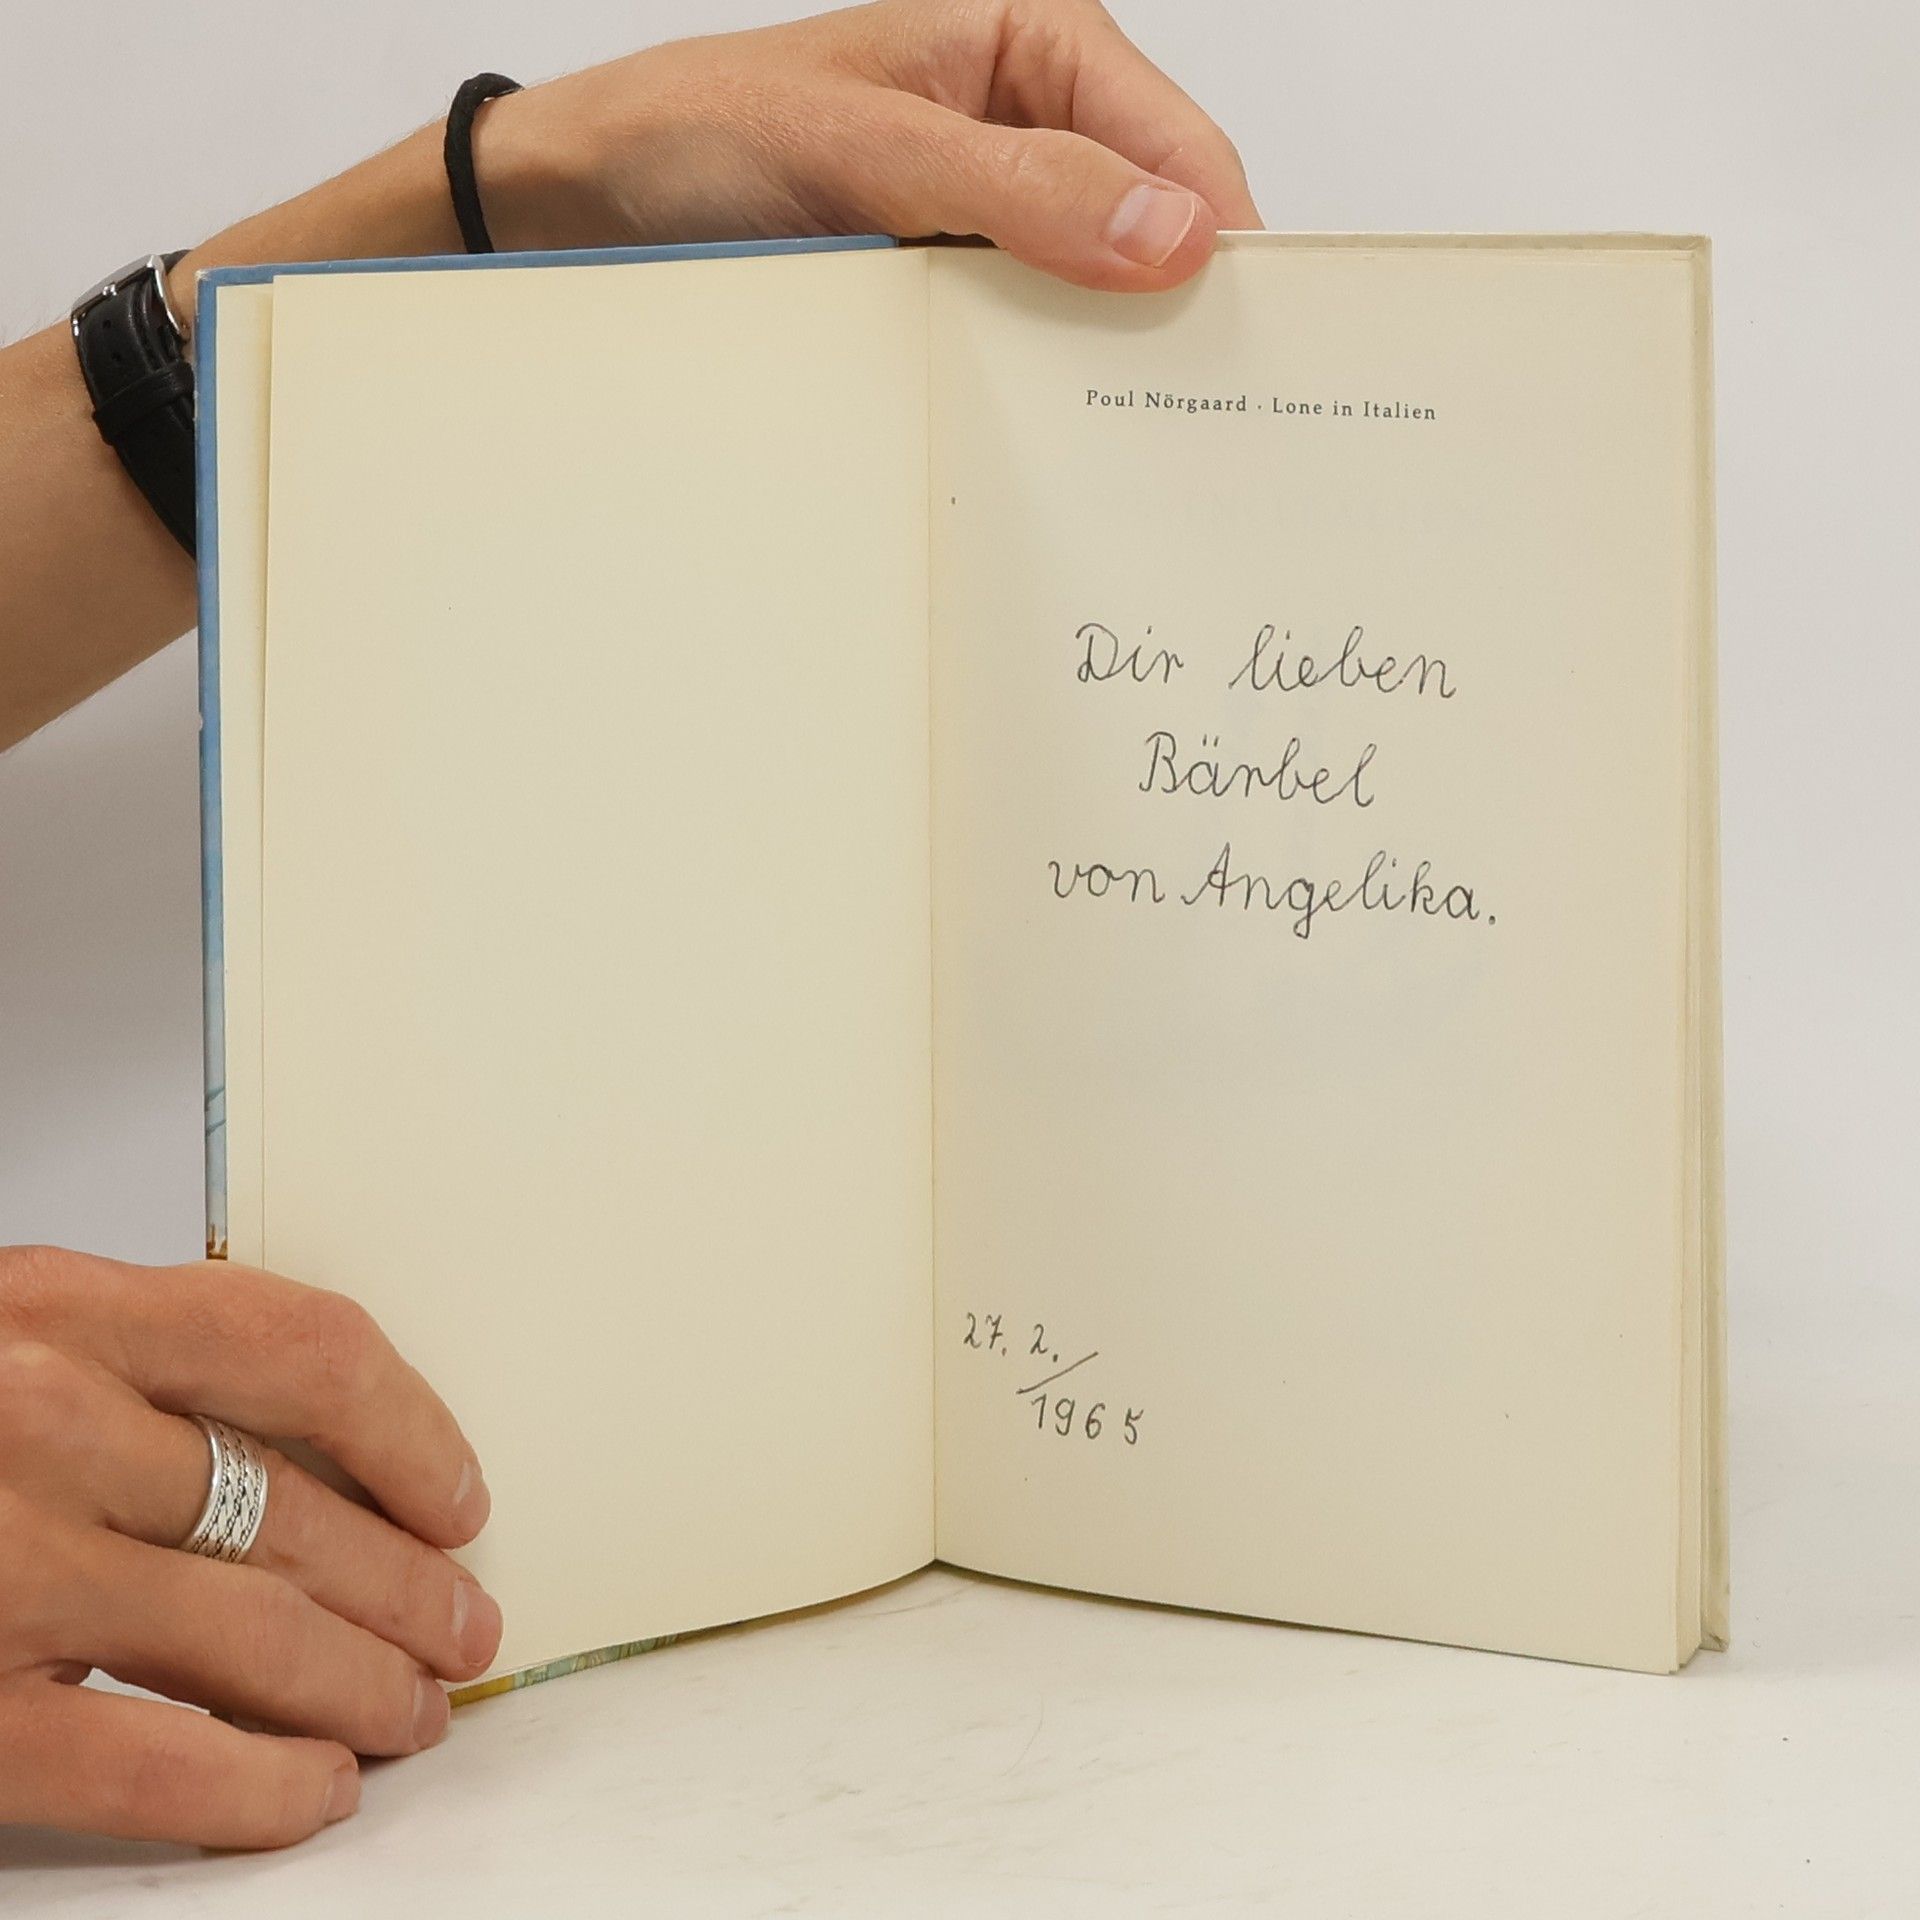 Poul Nörgaard · Lone in Italien
Dir lieben
Bärbel
von Angelika.
27. 2./
1965